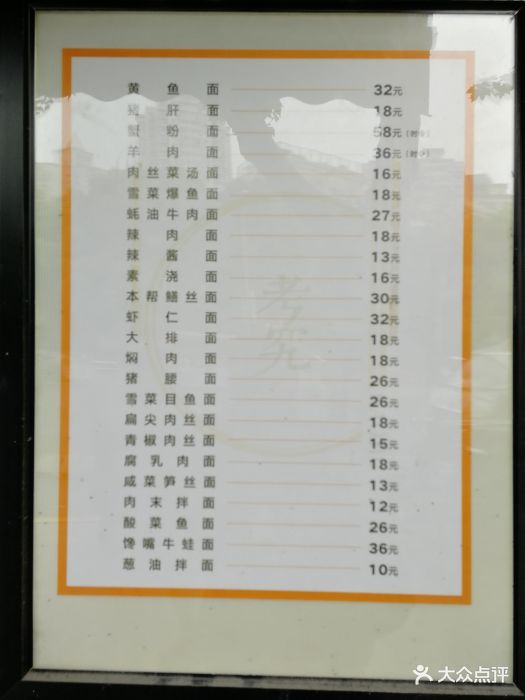 黄鱼面 32元
猪肝面 18元
蟹粉面 58元(时令)
羊肉面 36元(时令)
肉丝菜汤面 16元
雪菜爆鱼面 18元
蚝油牛肉面 27元
辣肉面 18元
辣酱面 13元
素浇面 16元
本帮鳝丝面 30元
虾仁面 32元
大排面 18元
焖肉面 18元
猪腰面 26元
雪菜目鱼面 26元
扁尖肉丝面 18元
青椒肉丝面 15元
腐乳肉面 18元
咸菜笋丝面 13元
肉末拌面 12元
酸菜鱼面 26元
馋嘴牛蛙面 36元
葱油拌面 10元
考究
大众点评